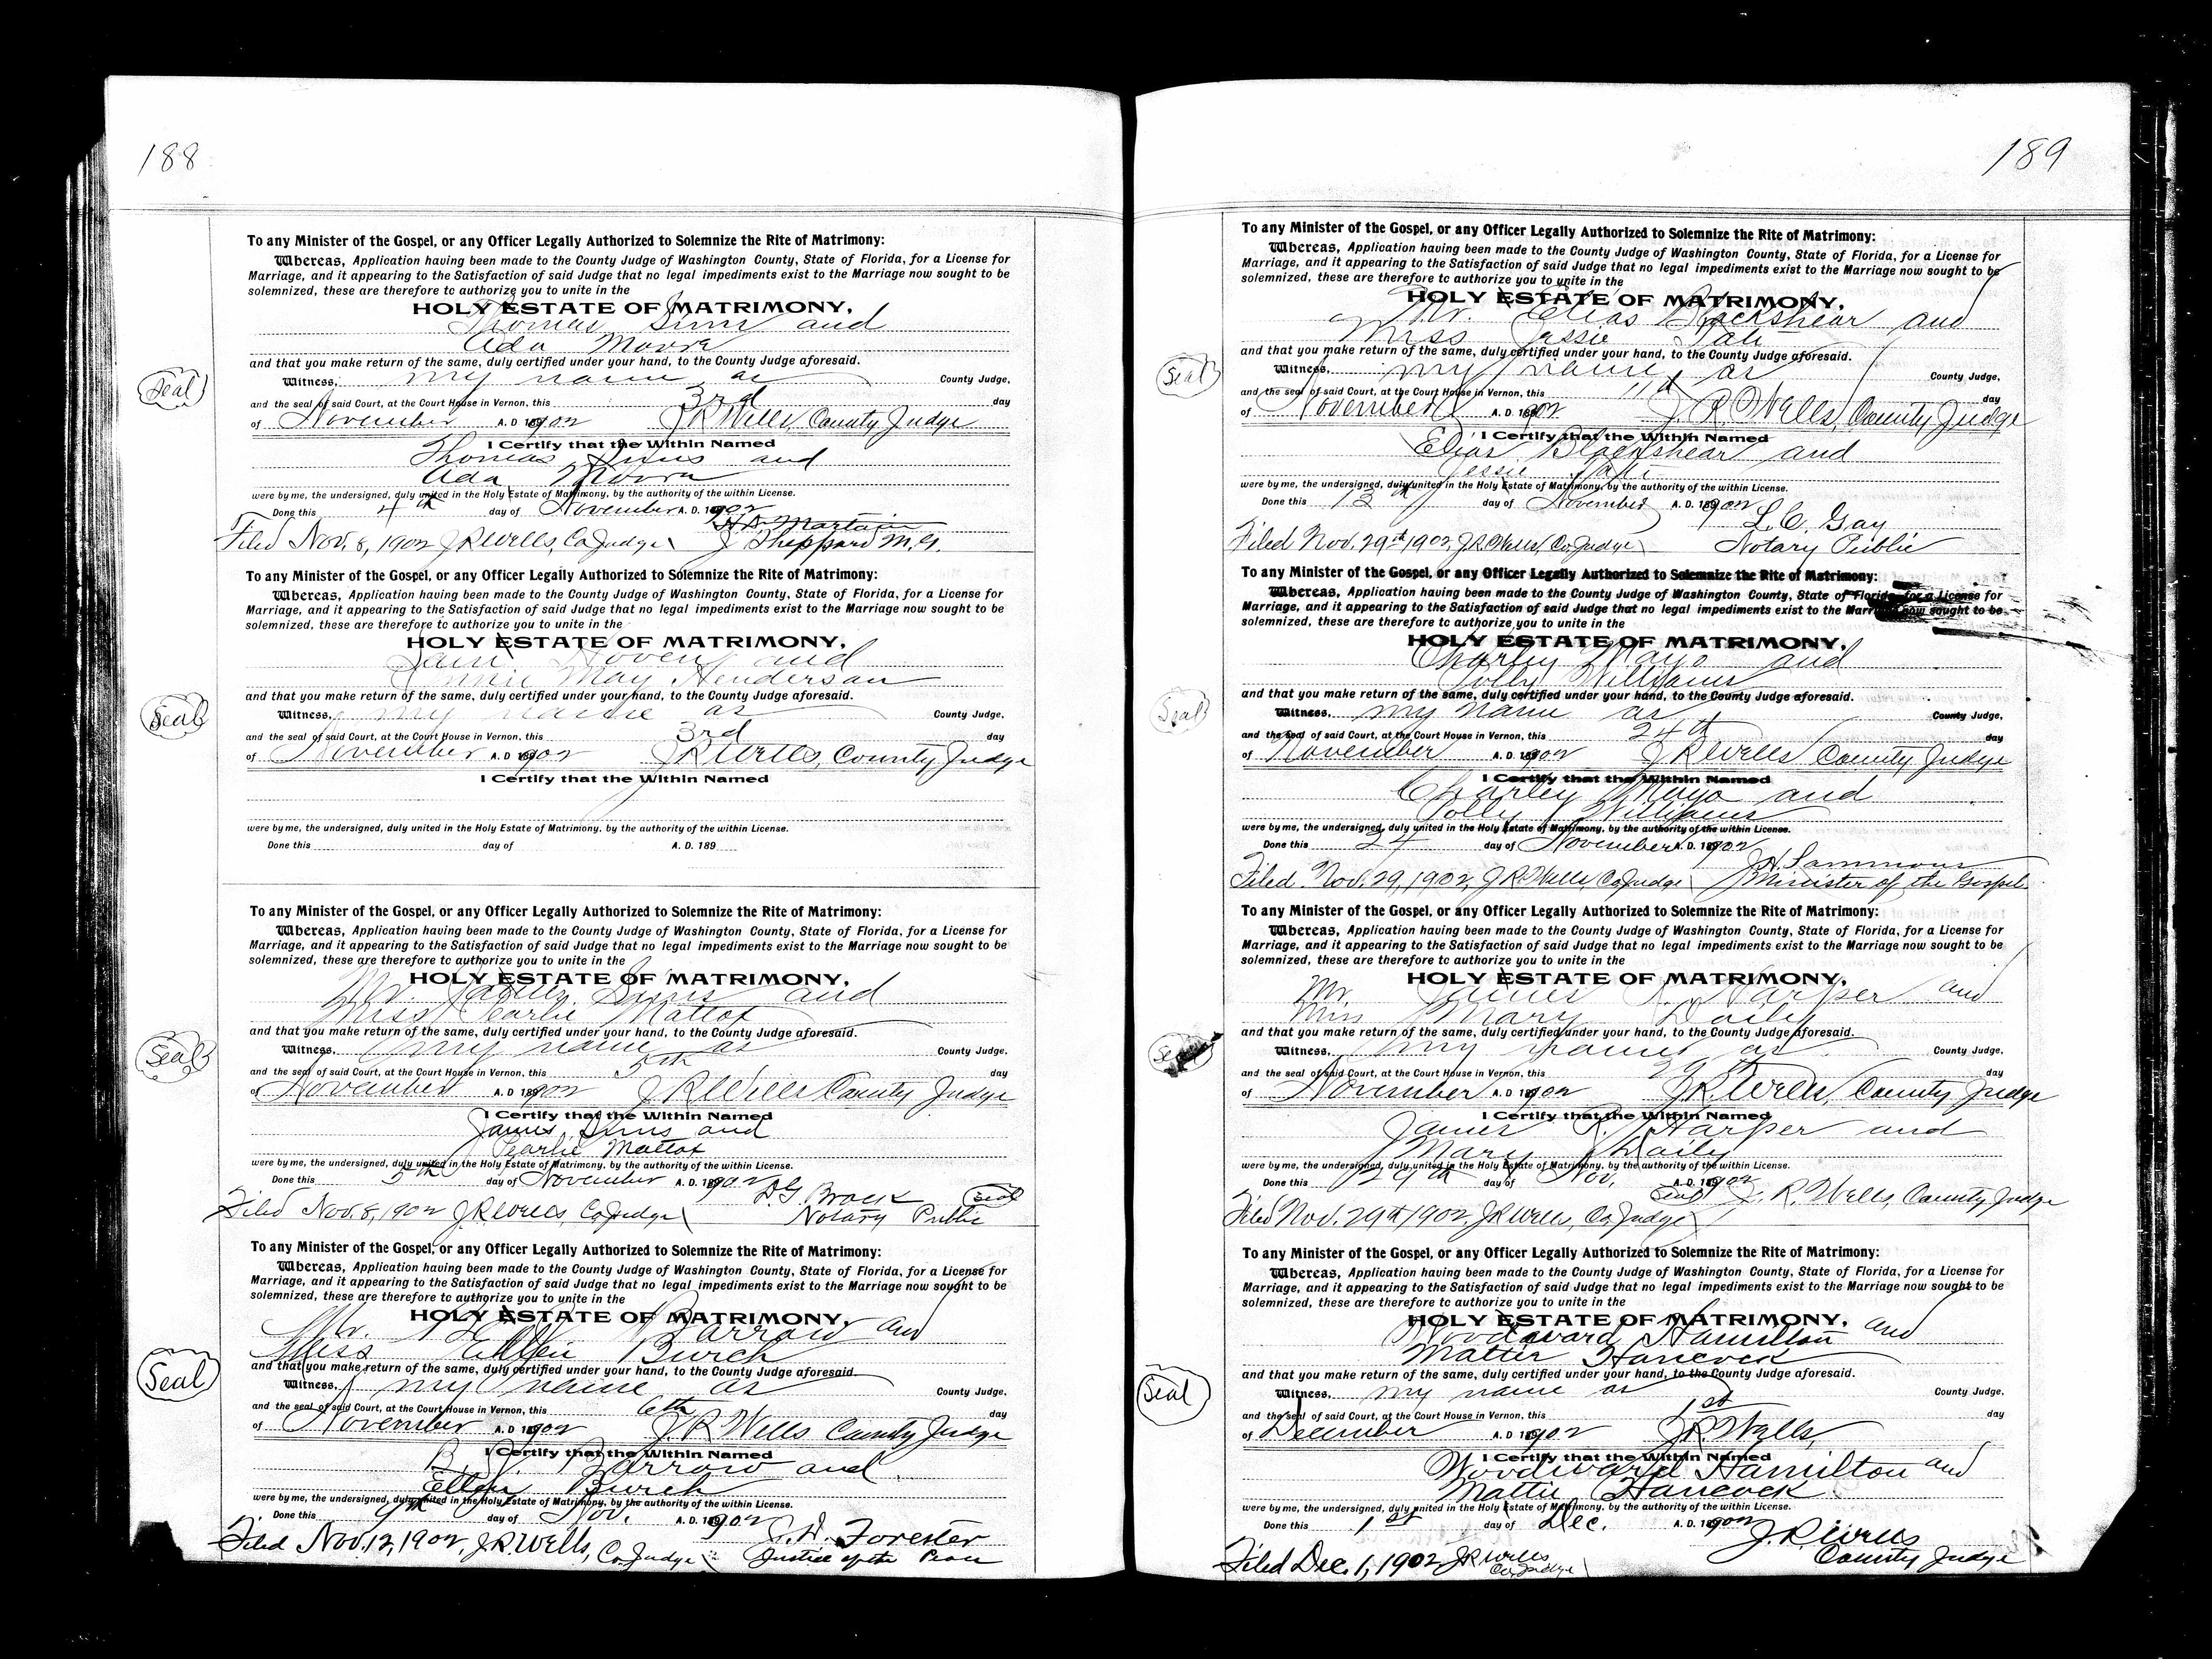 188
To any Minister of the Gospel, or any Officer Legally Authorized to Solemnize the Rite of Matrimony:
Whereas, Application having been made to the County Judge of Washington County, State of Florida, for a License for
Marriage, and it appearing to the Satisfaction of said Judge that no legal impediments exist to the Marriage now sought to be
solemnized, these are therefore to authorize you to unite in the
HOLY ESTATE OF MATRIMONY,
Thomas Sims and
Ada Moore
and that you make return of the same, duly certified under your hand, to the County Judge aforesaid.
Seal
Witness, my name as County Judge,
and the seal of said Court, at the Court House in Vernon, this 3rd day
of November A. D. 1902 J R Wells County Judge
I Certify that the Within Named
Thomas Sims and
Ada Moore
were by me, the undersigned, duly united in the Holy Estate of Matrimony, by the authority of the within License.
Done this 4th day of November A. D. 1902
Filed Nov. 8, 1902 J R Wells, Co Judge J. Sheppard M. G.
To any Minister of the Gospel, or any Officer Legally Authorized to Solemnize the Rite of Matrimony:
Whereas, Application having been made to the County Judge of Washington County, State of Florida, for a License for
Marriage, and it appearing to the Satisfaction of said Judge that no legal impediments exist to the Marriage now sought to be
solemnized, these are therefore to authorize you to unite in the
HOLY ESTATE OF MATRIMONY,
and
May Henderson
and that you make return of the same, duly certified under your hand, to the County Judge aforesaid.
Seal
Witness, my name as County Judge,
and the seal of said Court, at the Court House in Vernon, this 3rd day
of November A. D. 1902 J R Wells, County Judge
I Certify that the Within Named
were by me, the undersigned, duly united in the Holy Estate of Matrimony, by the authority of the within License.
Done this day of A. D. 189
To any Minister of the Gospel, or any Officer Legally Authorized to Solemnize the Rite of Matrimony:
Whereas, Application having been made to the County Judge of Washington County, State of Florida, for a License for
Marriage, and it appearing to the Satisfaction of said Judge that no legal impediments exist to the Marriage now sought to be
solemnized, these are therefore to authorize you to unite in the
HOLY ESTATE OF MATRIMONY,
Mr. James Sims and
Miss Pearlie Mattox
and that you make return of the same, duly certified under your hand, to the County Judge aforesaid.
Seal
Witness, my name as County Judge,
and the seal of said Court, at the Court House in Vernon, this 5th day
of November A. D. 1902 J R Wells County Judge
I Certify that the Within Named
James Sims and
Pearlie Mattox
were by me, the undersigned, duly united in the Holy Estate of Matrimony, by the authority of the within License.
Done this 5th day of November A. D. 1902 Brock Seal
Filed Nov. 8, 1902 J R Wells, Co Judge Notary Public
To any Minister of the Gospel, or any Officer Legally Authorized to Solemnize the Rite of Matrimony:
Whereas, Application having been made to the County Judge of Washington County, State of Florida, for a License for
Marriage, and it appearing to the Satisfaction of said Judge that no legal impediments exist to the Marriage now sought to be
solemnized, these are therefore to authorize you to unite in the
HOLY ESTATE OF MATRIMONY,
Mr. Barrow and
Miss Ellen Burch
and that you make return of the same, duly certified under your hand, to the County Judge aforesaid.
Seal
Witness, my name as County Judge,
and the seal of said Court, at the Court House in Vernon, this 6th day
of November A. D. 1902 J R Wells County Judge
I Certify that the Within Named
Barrow and
Ellen Burch
were by me, the undersigned, duly united in the Holy Estate of Matrimony, by the authority of the within License.
Done this 9th day of Nov. A. D. 1902 Forester
Filed Nov. 12, 1902, J. R. Wells, Co. Judge Justice of the Peace
189
To any Minister of the Gospel, or any Officer Legally Authorized to Solemnize the Rite of Matrimony:
Whereas, Application having been made to the County Judge of Washington County, State of Florida, for a License for
Marriage, and it appearing to the Satisfaction of said Judge that no legal impediments exist to the Marriage now sought to be
solemnized, these are therefore to authorize you to unite in the
HOLY ESTATE OF MATRIMONY,
Mr. Elias Blackshear and
Miss Jessie
and that you make return of the same, duly certified under your hand, to the County Judge aforesaid.
Seal
Witness, my name as County Judge,
and the seal of said Court, at the Court House in Vernon, this 11th day
of November A. D. 1902 J. R. Wells, County Judge
I Certify that the Within Named
Elias Blackshear and
Jessie
were by me, the undersigned, duly united in the Holy Estate of Matrimony, by the authority of the within License.
Done this 13th day of November A. D. 1902 L. C. Gay
Filed Nov. 29th 1902, J R Wells Co Judge Notary Public
To any Minister of the Gospel, or any Officer Legally Authorized to Solemnize the Rite of Matrimony:
Whereas, Application having been made to the County Judge of Washington County, State of Florida, for a License for
Marriage, and it appearing to the Satisfaction of said Judge that no legal impediments exist to the Marriage now sought to be
solemnized, these are therefore to authorize you to unite in the
HOLY ESTATE OF MATRIMONY,
Charley Mayo and
Polly Williams
and that you make return of the same, duly certified under your hand, to the County Judge aforesaid.
Seal
Witness, my name as County Judge,
and the seal of said Court, at the Court House in Vernon, this 24th day
of November A. D. 1902 J R Wells County Judge
I Certify that the Within Named
Charley Mayo and
Polly Williams
were by me, the undersigned, duly united in the Holy Estate of Matrimony, by the authority of the within License.
Done this 24 day of November A. D. 1902 J. H. Sammons
Filed Nov. 29, 1902, J R Wells Co Judge Minister of the Gospel
To any Minister of the Gospel, or any Officer Legally Authorized to Solemnize the Rite of Matrimony:
Whereas, Application having been made to the County Judge of Washington County, State of Florida, for a License for
Marriage, and it appearing to the Satisfaction of said Judge that no legal impediments exist to the Marriage now sought to be
solemnized, these are therefore to authorize you to unite in the
HOLY ESTATE OF MATRIMONY,
Mr. James R. Harper and
Miss Mary Daily
and that you make return of the same, duly certified under your hand, to the County Judge aforesaid.
Seal
Witness, my name as County Judge,
and the seal of said Court, at the Court House in Vernon, this 29th day
of November A. D. 1902 J. R. Wells, County Judge
I Certify that the Within Named
James R. Harper and
Mary Daily
were by me, the undersigned, duly united in the Holy Estate of Matrimony, by the authority of the within License.
Done this 29th day of Nov. A. D. 1902 Seal J. R. Wells, County Judge
Filed Nov. 29th 1902. J R Wells, Co Judge
To any Minister of the Gospel, or any Officer Legally Authorized to Solemnize the Rite of Matrimony:
Whereas, Application having been made to the County Judge of Washington County, State of Florida, for a License for
Marriage, and it appearing to the Satisfaction of said Judge that no legal impediments exist to the Marriage now sought to be
solemnized, these are therefore to authorize you to unite in the
HOLY ESTATE OF MATRIMONY,
Woodward Hamilton and
Mattie Hancock
and that you make return of the same, duly certified under your hand, to the County Judge aforesaid.
Seal
Witness, my name as County Judge,
and the seal of said Court, at the Court House in Vernon, this 1st day
of December A. D. 1902 J R Wells,
I Certify that the Within Named
Woodward Hamilton and
Mattie Hancock
were by me, the undersigned, duly united in the Holy Estate of Matrimony, by the authority of the within License.
Done this 1st day of Dec. A. D. 1902 J. R. Wells
Filed Dec. 1, 1902 J R Wells Co. Judge County Judge